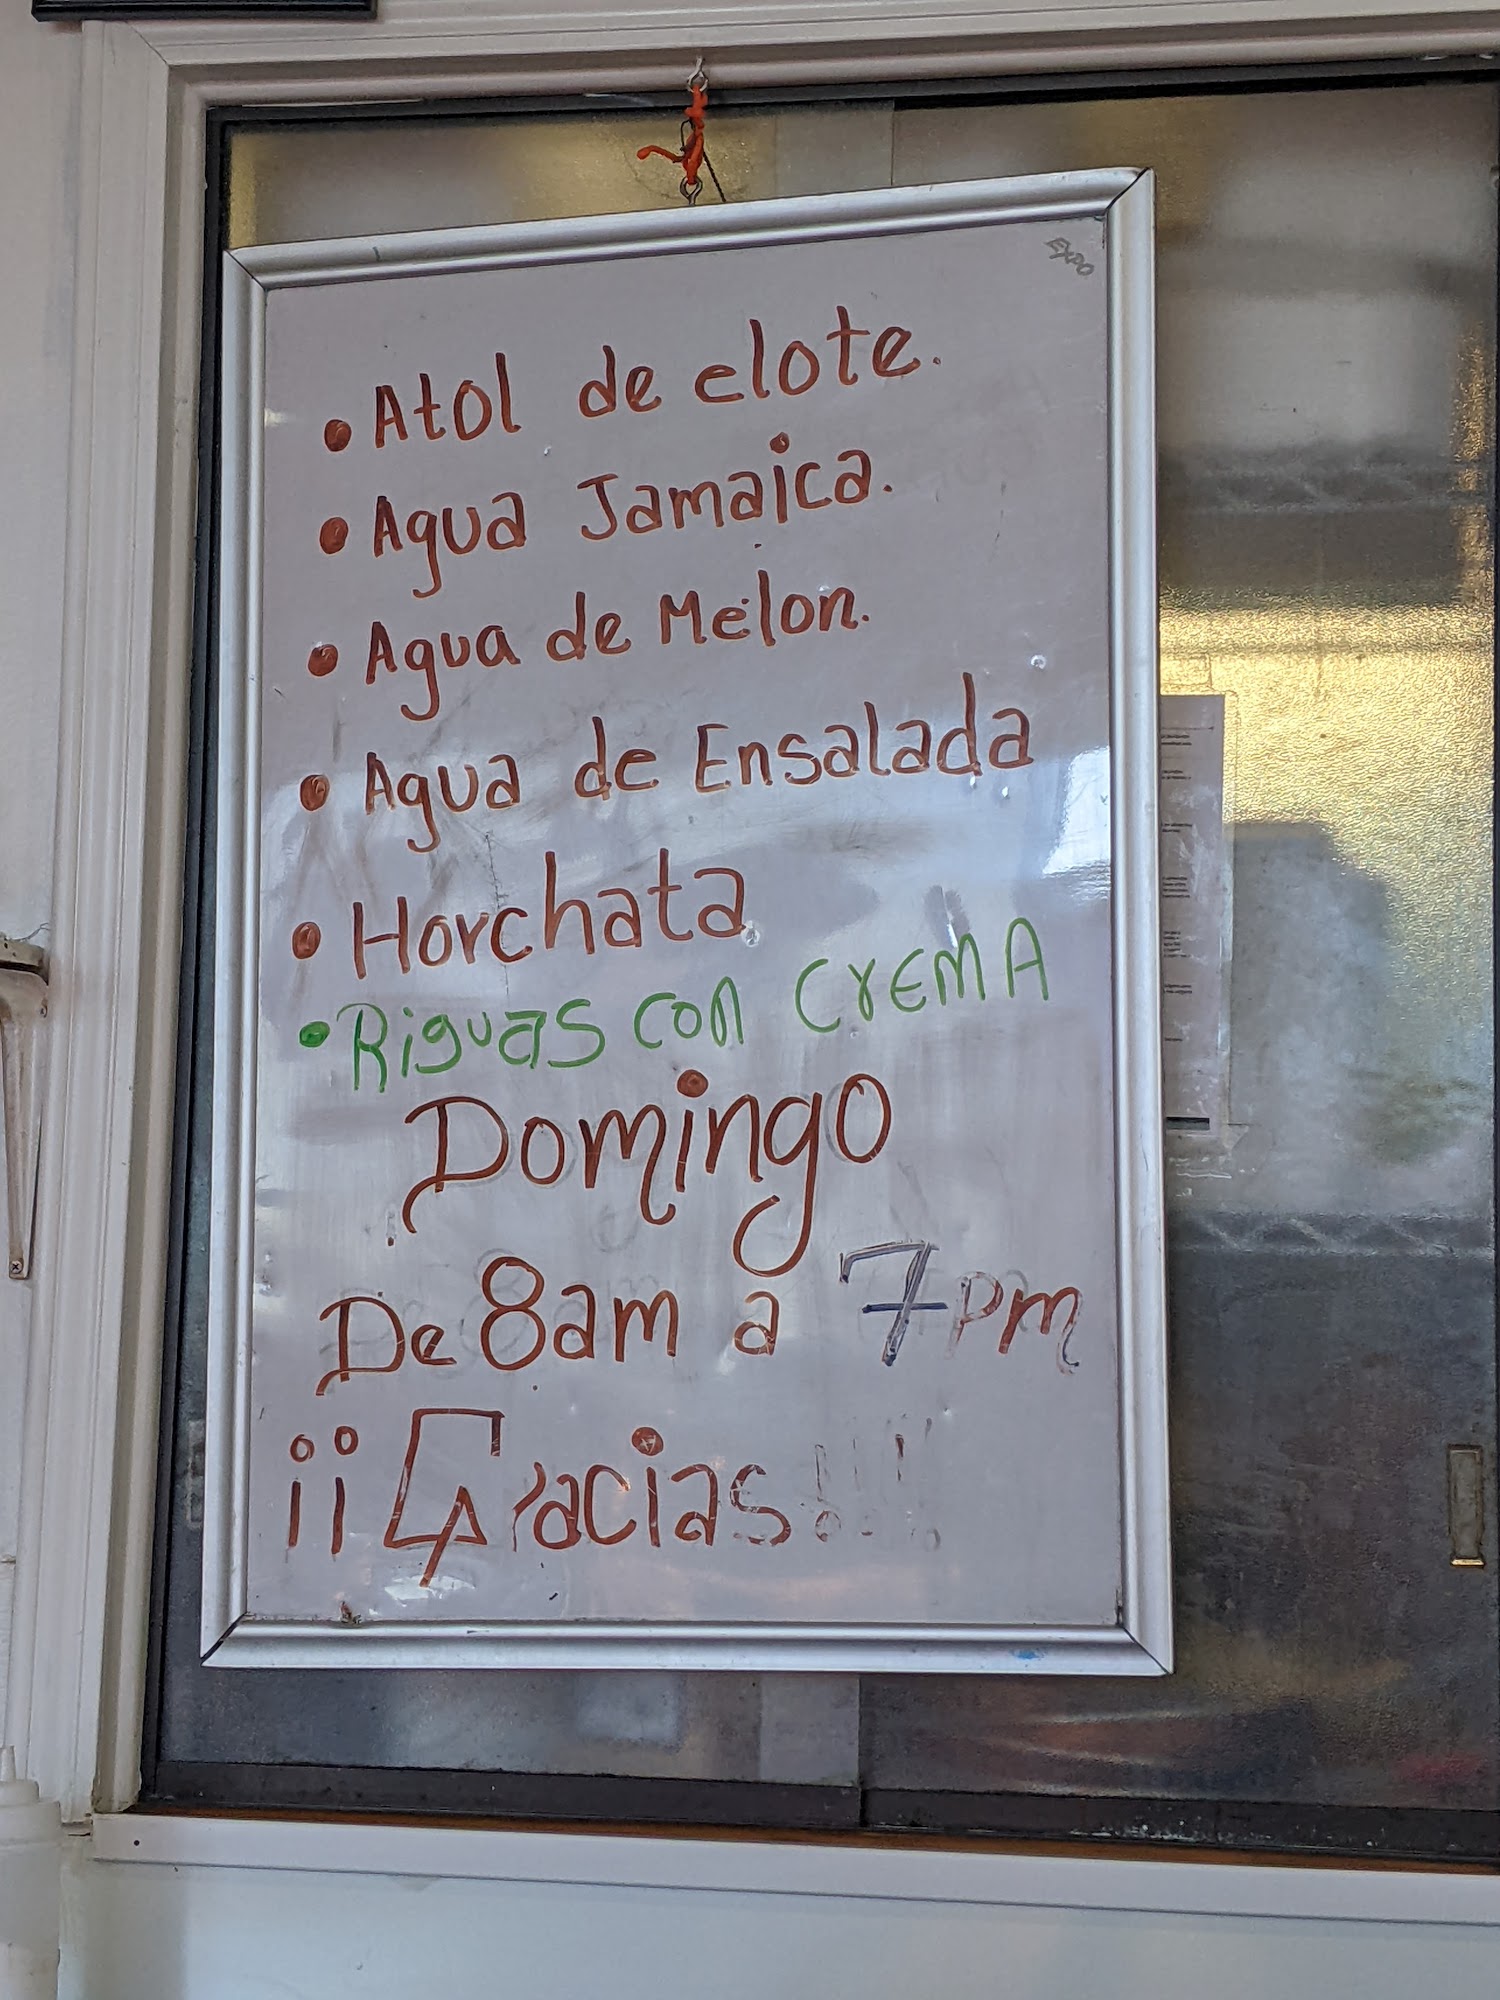 EXPO
• Atol de elote.
• Agua Jamaica.
• Agua de Melon.
• Agua de Ensalada
• Horchata
• Riguas con CrEMA
Domingo
De 8am a 7pm
¡¡Gracias!!!